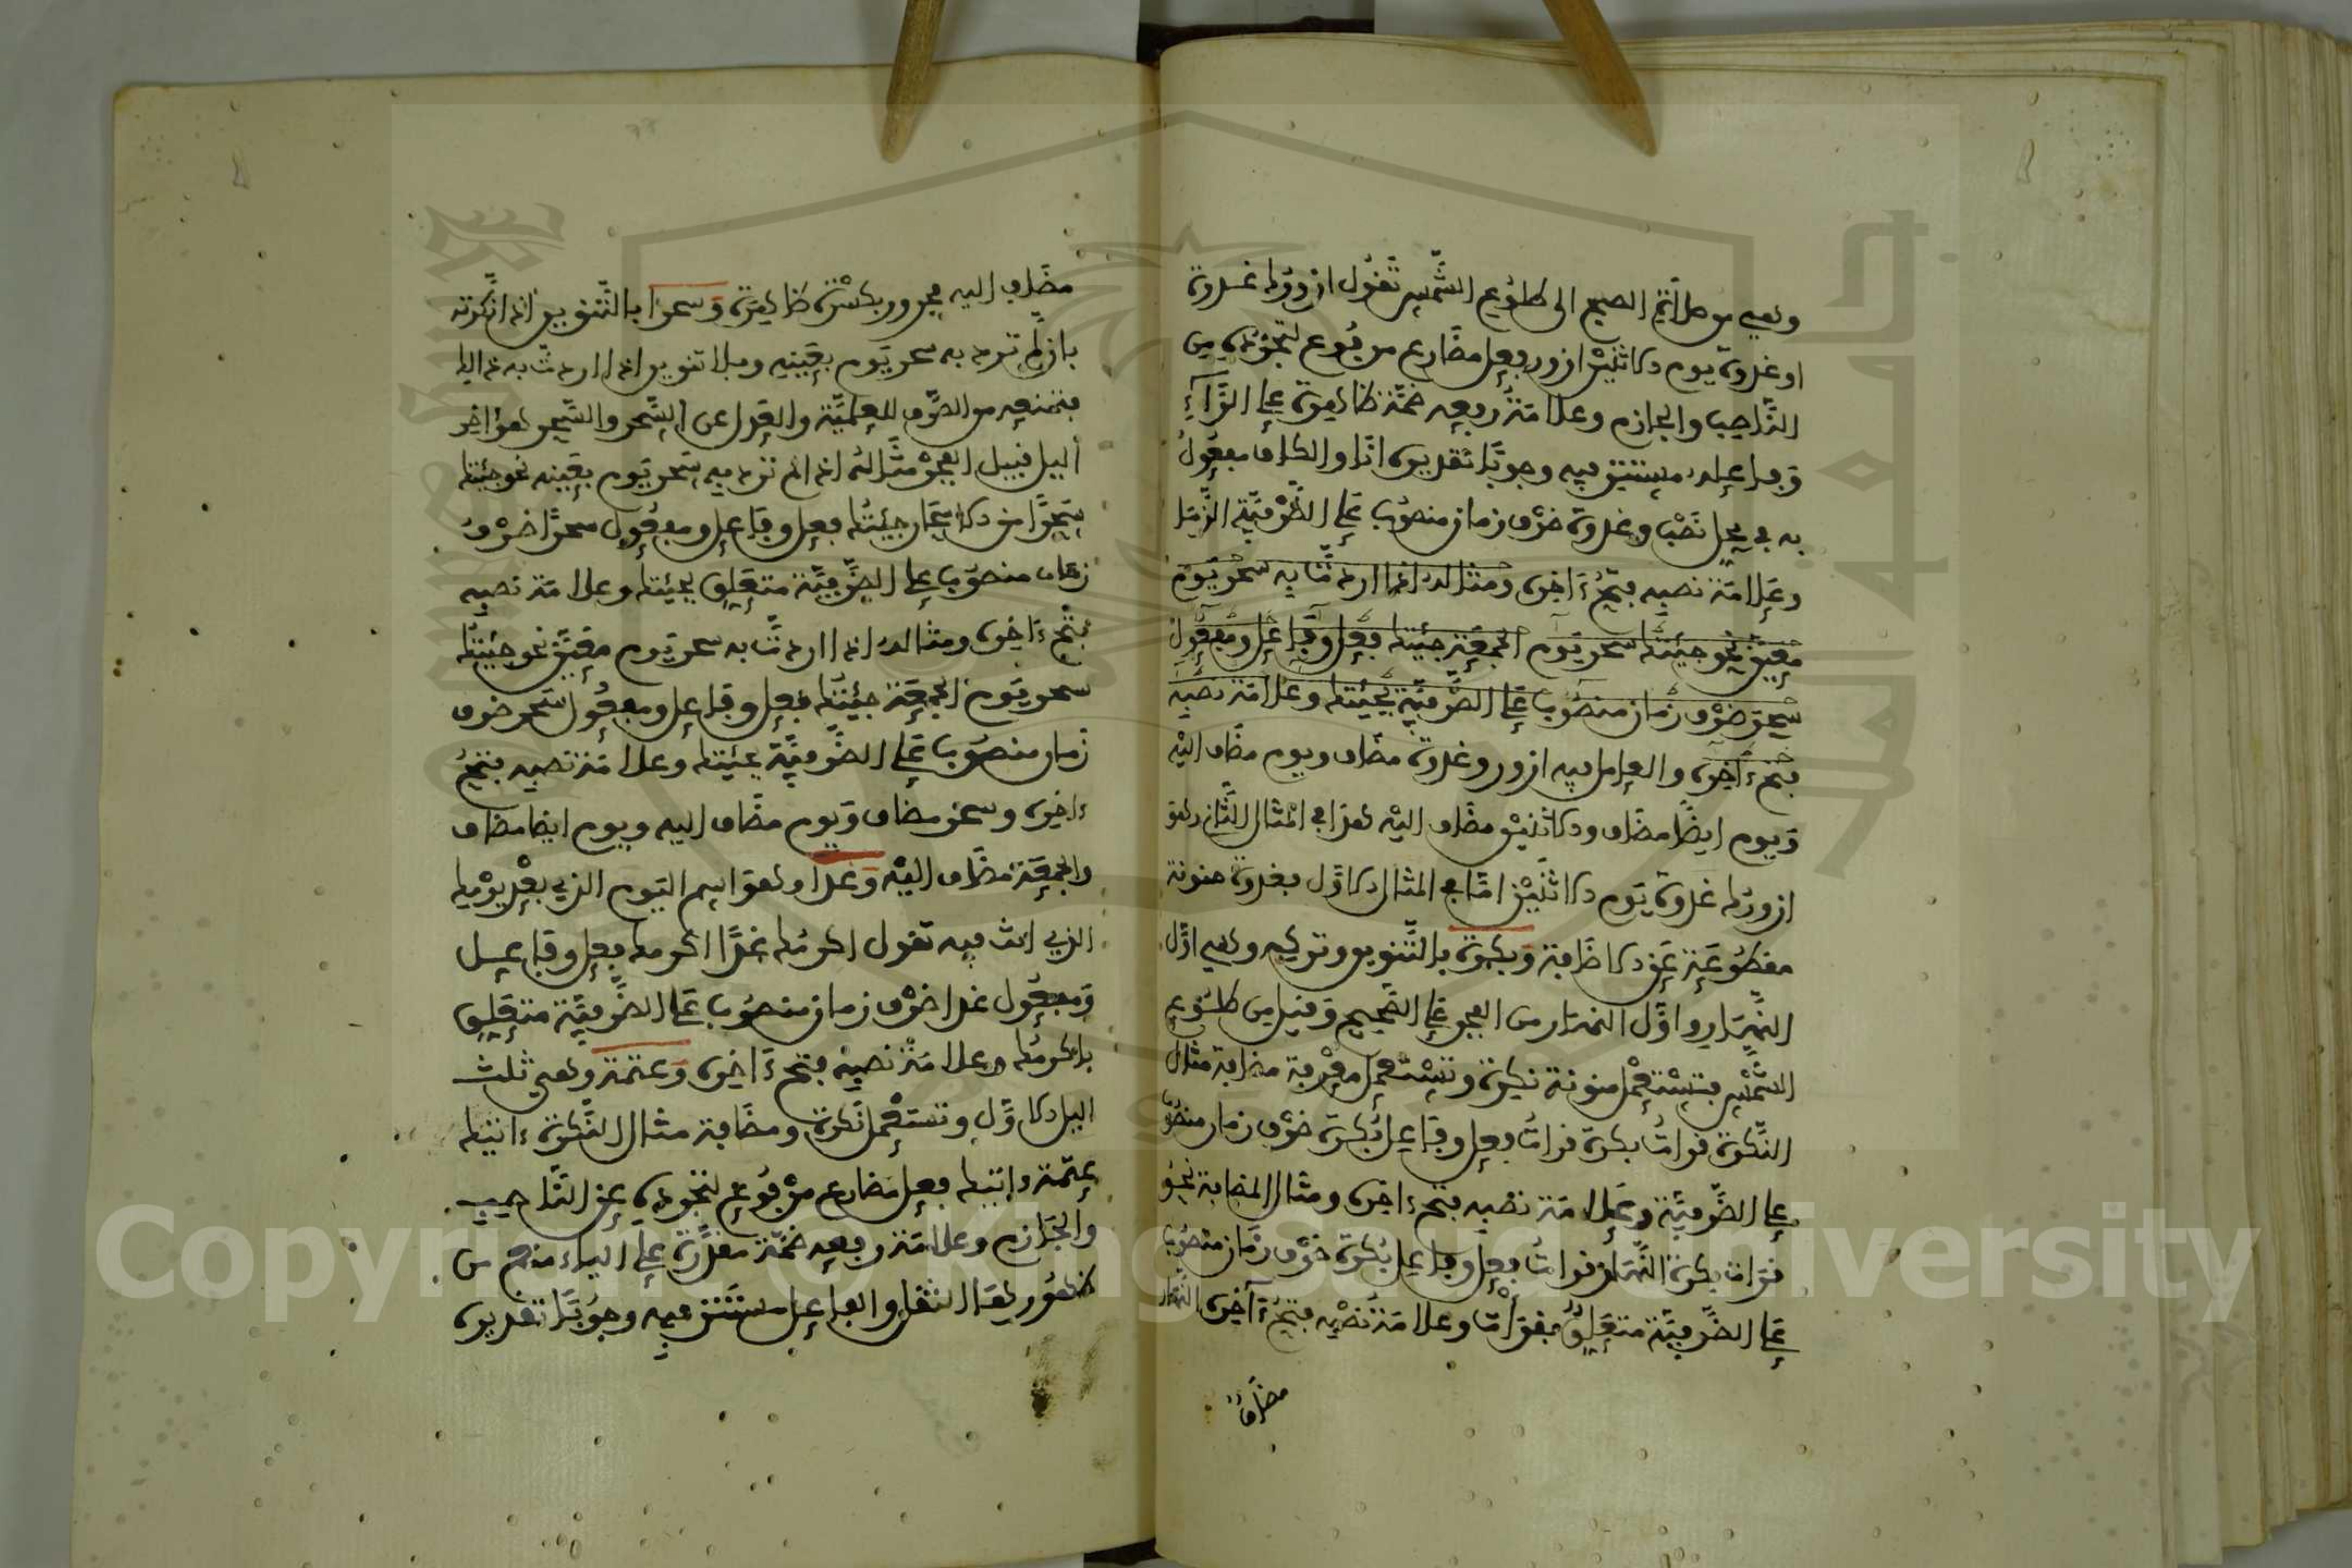 وهي من صلاة الصبح الى طلوع الشمس تقول ازورك غدوة
او غدوة يوم الاثنين ازور فعل مضارع مرفوع لتجرده من
الناصب والجازم وعلامة رفعه ضمة ظاهرة على الراء
وفاعله مستتر فيه وجوبا تقديره انا والكاف مفعول
به في محل نصب وغدوة ظرف زمان منصوب على الظرفية الزمنـ
وعلامة نصبه فتح ءاخره ومثاله اذا اردت به سحر يوم
معين نحو جئتك سحر يوم الجمعة جئتك فعل وفاعل ومفعول
سحر ظرف زمان منصوب على الظرفية بجئتك وعلامة نصبه
فتح ءاخره والعامل فيه ازور وغدوة مضاف ويوم مضاف اليه
ويوم ايضا مضاف والاثنين مضاف اليه هذا في المثال الثاني وهو
ازورك غدوة يوم الاثنين اما في المثال الاول فغدوة منونة
مقطوعة عن الاضافة وبكرة بالتنوين وتركه وهي اول
النهار واول النهار من الفجر على الصحيح وقيل من طلوع
الشمس فتستعمل منونة نكرة وتستعمل معرفة مضافة مثال
النكرة قرات بكرة قرات فعل وفاعل بكرة ظرف زمان منصوب
على الظرفية وعلامة نصبه فتح ءاخره ومثال المضافة نحو
قرات بكرة النهار قرات فعل وفاعل بكرة ظرف زمان منصوب
على الظرفية متعلق بقرات وعلامة نصبه فتح ءاخره النهار
مضاف
مضاف اليه مجرور بكسرة ظاهرة وسحرا بالتنوين اذا نكرته
بان لم ترد به سحر يوم بعينه وبلا تنوين اذا اردت به ذالك
فتمنعه من الصرف للعلمية والعدل عن السحر والسحر هو ءاخر
اليل قبيل الفجر مثاله اذا لم ترد به سحر يوم بعينه نحو جئتك
سحرا من الاسحار جئتك فعل وفاعل ومفعول سحرا ظرف
زمان منصوب على الظرفية متعلق بجئتك وعلامة نصبه
فتح ءاخره ومثاله اذا اردت به سحر يوم معين نحو جئتك
سحر يوم الجمعة جئتك فعل وفاعل ومفعول سحر ظرف
زمان منصوب على الظرفية بجئتك وعلامة نصبه فتح
ءاخره وسحر مضاف ويوم مضاف اليه ويوم ايضا مضاف
والجمعة مضاف اليه وغدا وهو اسم اليوم الذي بعد يومك
الذي انت فيه تقول اكرمك غدا اكرمك فعل وفاعل
ومفعول غدا ظرف زمان منصوب على الظرفية متعلق
باكرمك وعلامة نصبه فتح ءاخره وعتمة وهي ثلث
اليل الاول وتستعمل نكرة ومضافة مثال النكرة ءاتيك
عتمة ءاتيك فعل مضارع مرفوع لتجرده عن الناصب
والجازم وعلامة رفعه ضمة مقدرة على الياء منع من
ظهورها الثقل والفاعل مستتر فيه وجوبا تقديره
Copyright © King Saud University